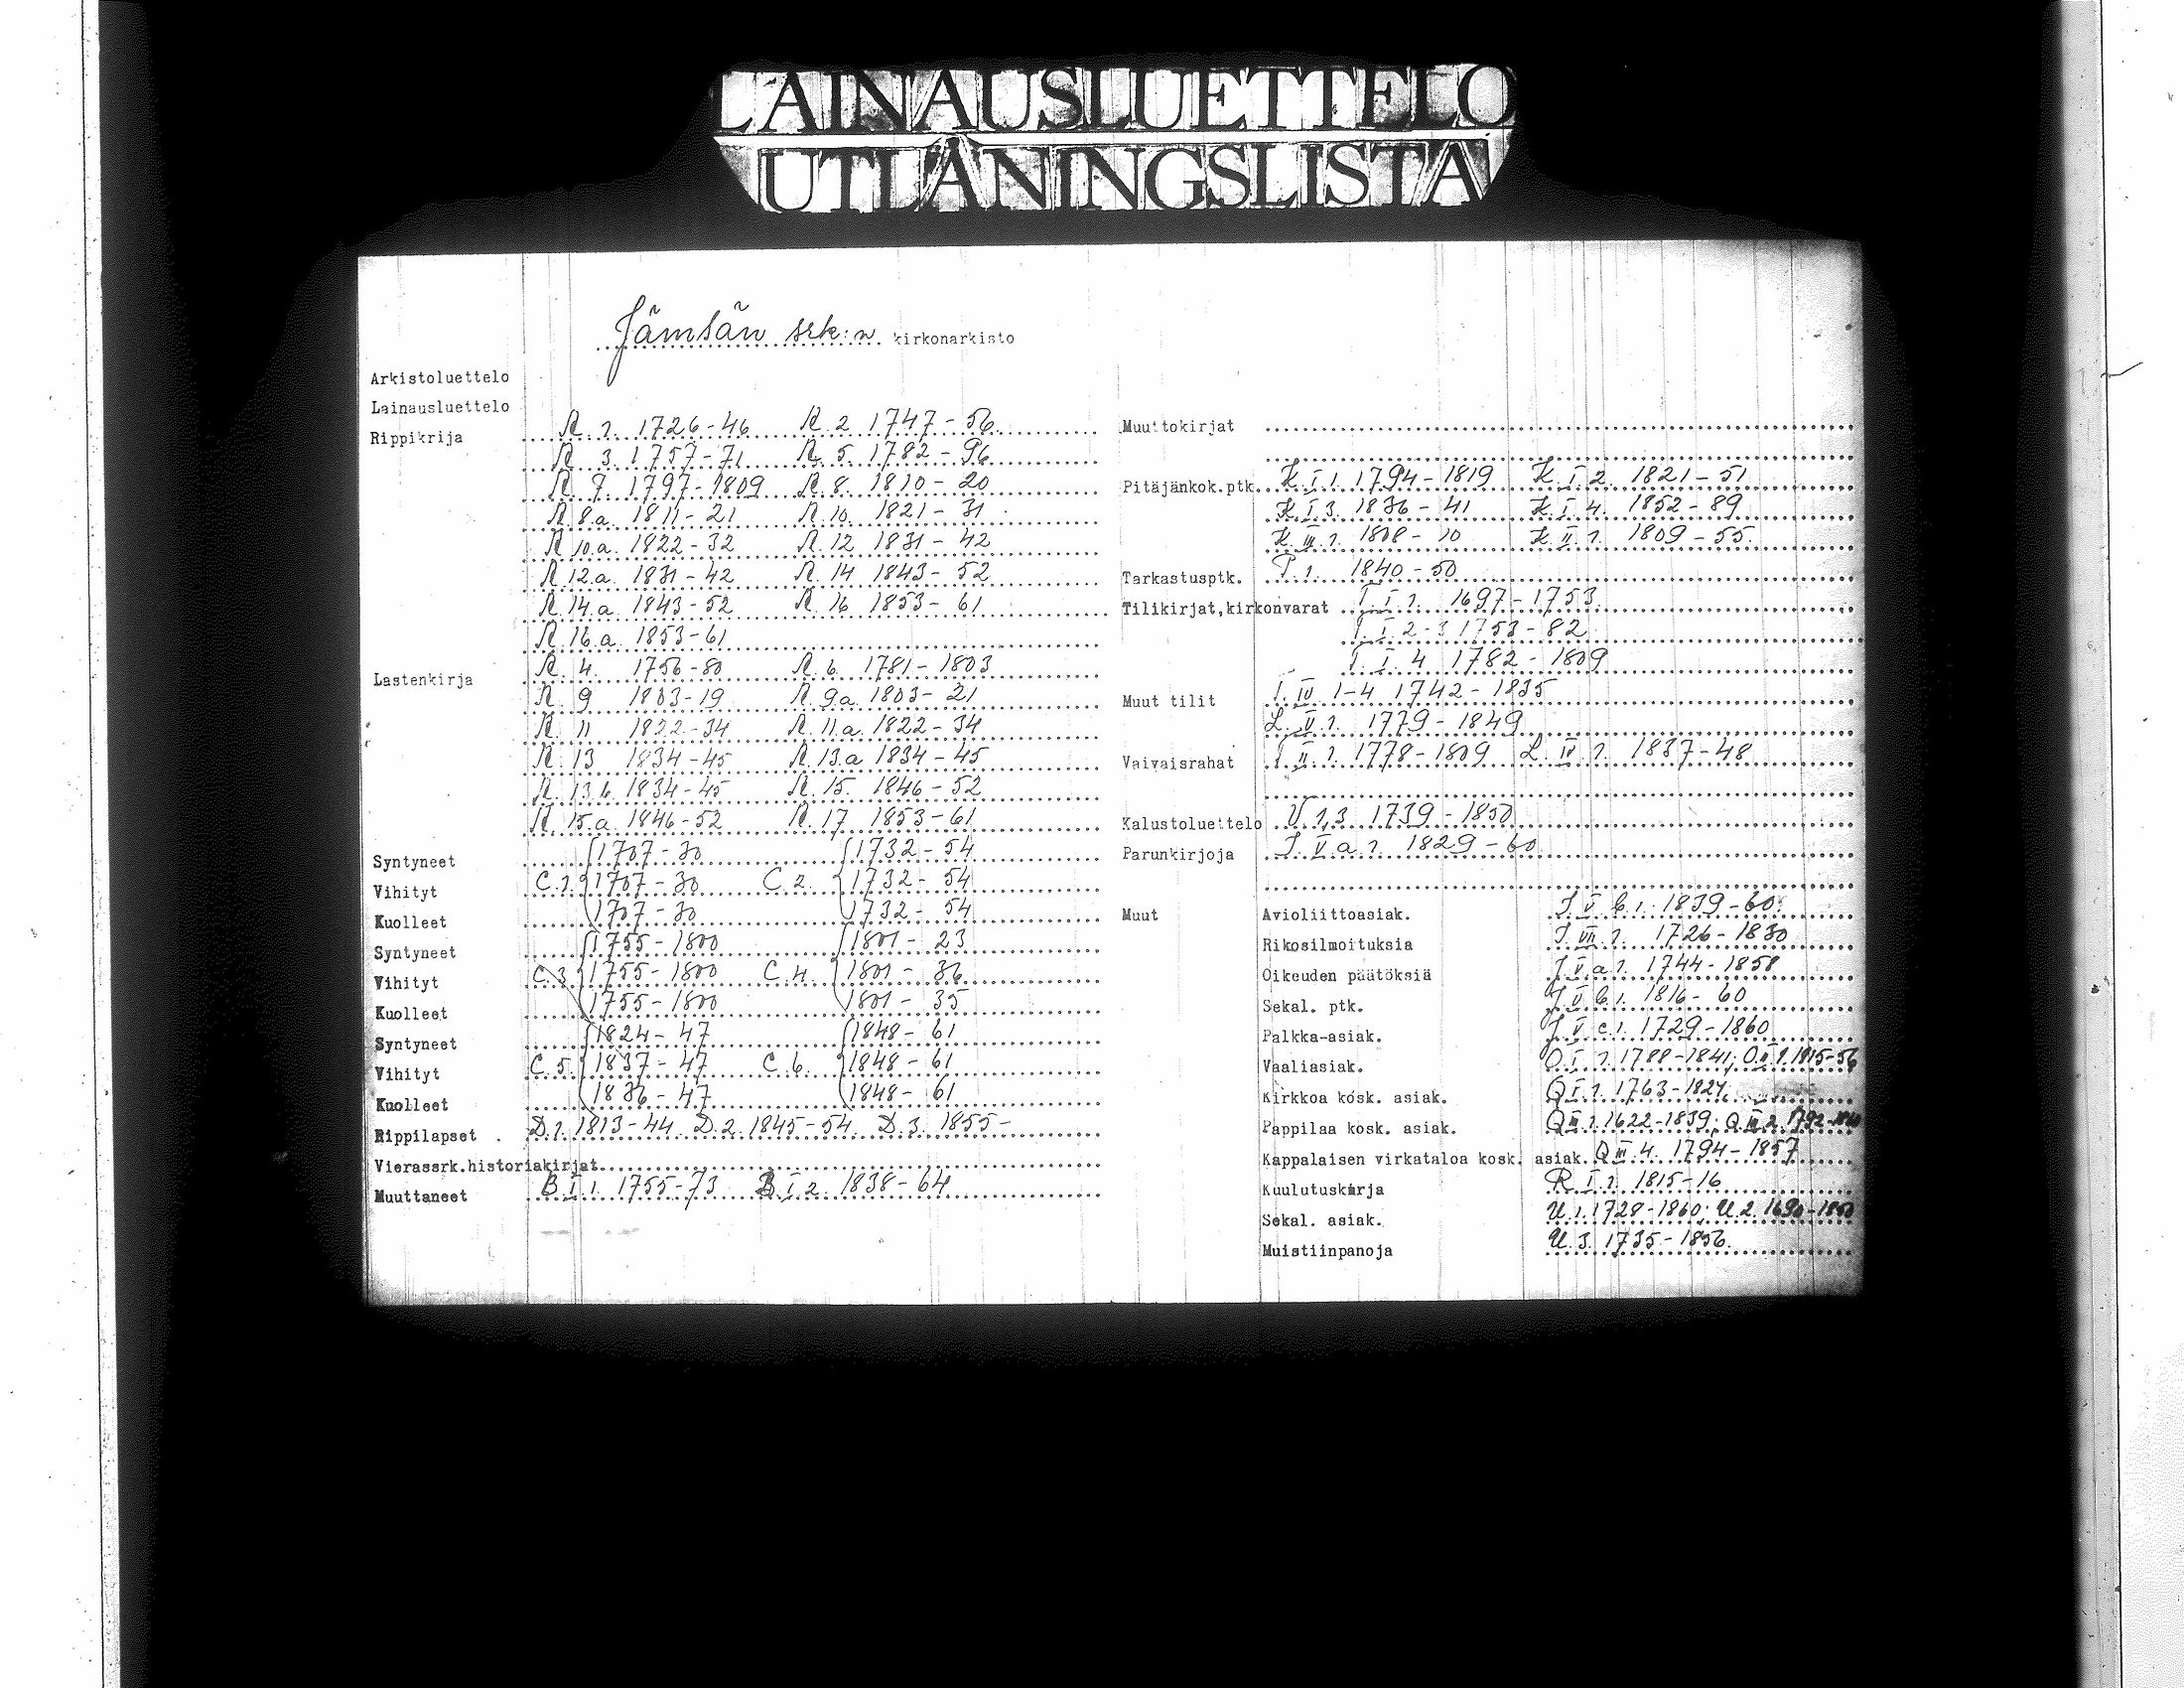 LAINAUSLUETTELO
UTLÅNINGSLISTA
Jämsän srk:n kirkonarkisto
Arkistoluettelo
Lainausluettelo
Rippikrija R. 1. 1726-46 R. 2 1747-56
R. 3. 1757-71 R. 5. 1782-96
R. 7. 1797-1809 R. 8. 1810-20
R. 8.a. 1811-21 R. 10. 1821-31
R. 10.a. 1822-32 R. 12 1831-42
R. 12.a. 1831-42 R. 14 1843-52
R. 14.a 1843-52 R. 16 1853-61
R. 16.a 1853-61
Lastenkirja R. 4. 1756-80 R. 6 1781-1803
R. 9 1803-19 R. 9a 1803-21
R. 11 1822-34 R. 11.a. 1822-34
R. 13 1834-45 R. 13.a 1834-45
R. 13.b. 1834-45 R. 15. 1846-52
R. 15.a 1846-52 R. 17 1853-61
Syntyneet 1707-30 1732-54
Vihityt C.1. 1707-30 C.2. 1732-54
Kuolleet 1707-30 1732-54
Syntyneet 1755-1800 1801-23
Vihityt C.3. 1755-1800 C.4. 1801-36
Kuolleet 1755-1800 1801-35
Syntyneet 1824-47 1848-61
Vihityt C.5. 1837-47 C.6. 1848-61
Kuolleet 1836-47 1848-61
Rippilapset D.1. 1813-44 D.2. 1845-54 D.3. 1855-
Vierassrk.historiakirjat
Muuttaneet B.I.1. 1755-73 B.I.2. 1838-64
Muuttokirjat
Pitäjänkok.ptk. K.I.1. 1794-1819 K.I.2. 1821-51
K.I.3. 1836-41 K.I.4. 1852-89
K.III.1. 1808-10 K.II.1. 1809-55
Tarkastusptk. P.1. 1840-50
Tilikirjat,kirkonvarat I.I.1. 1697-1753
I.I.2-3 1753-82
I.I.4 1782-1809
Muut tilit I.IV.1-4 1742-1835
L.V.1. 1779-1849
Vaivaisrahat I.II.1. 1778-1809 L.IV.1. 1837-48
Kalustoluettelo V.1,3 1739-1850
Parunkirjoja J.V.a.1. 1829-60
Muut Avioliittoasiak. J.V.b.1. 1839-60
Rikosilmoituksia J.VII.1. 1726-1830
Oikeuden päätöksiä J.V.a.1. 1744-1858
Sekal. ptk. J.V.b.1. 1816-60
Palkka-asiak. J.V.c.1. 1729-1860
Vaaliasiak. O.I.1. 1788-1841; O.II.1. 1815-56
Kirkkoa kosk. asiak. Q.I.1. 1763-1827
Pappilaa kosk. asiak. Q.III.1. 1622-1839; Q.III.2. 1792-
Kappalaisen virkataloa kosk. asiak. Q.III.4. 1794-1857
Kuulutuskirja R.I.1. 1815-16
Sekal. asiak. U.1. 1728-1860; U.2. 1690-1850
Muistiinpanoja U.3. 1735-1856